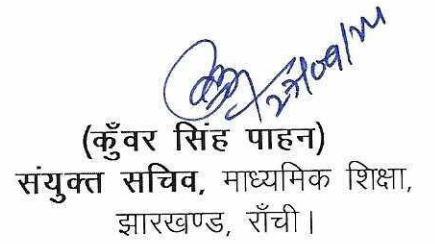 27/09/24
(कुँवर सिंह पाहन)
संयुक्त सचिव, माध्यमिक शिक्षा,
झारखण्ड, राँची।